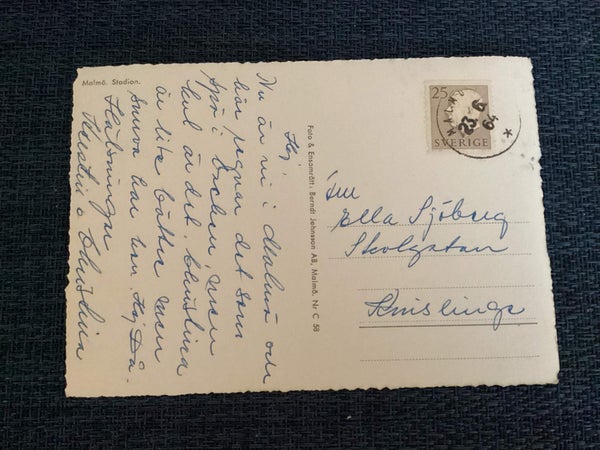 Malmö. Stadion.
Hej
Nu är vi i Malmö och
här regnar det som
spö i backen men
kul är det. Christina
är lite bättre men
snuva har hon. Hej Då.
Hälsningar
Kerstin o Christina
Foto & Ensamrätt: Berndt Johnsson AB, Malmö. Nr C 58
25
SVERIGE
MALMÖ
23 6
64
*
Ella Sjöberg
Skolgatan
Knislinge